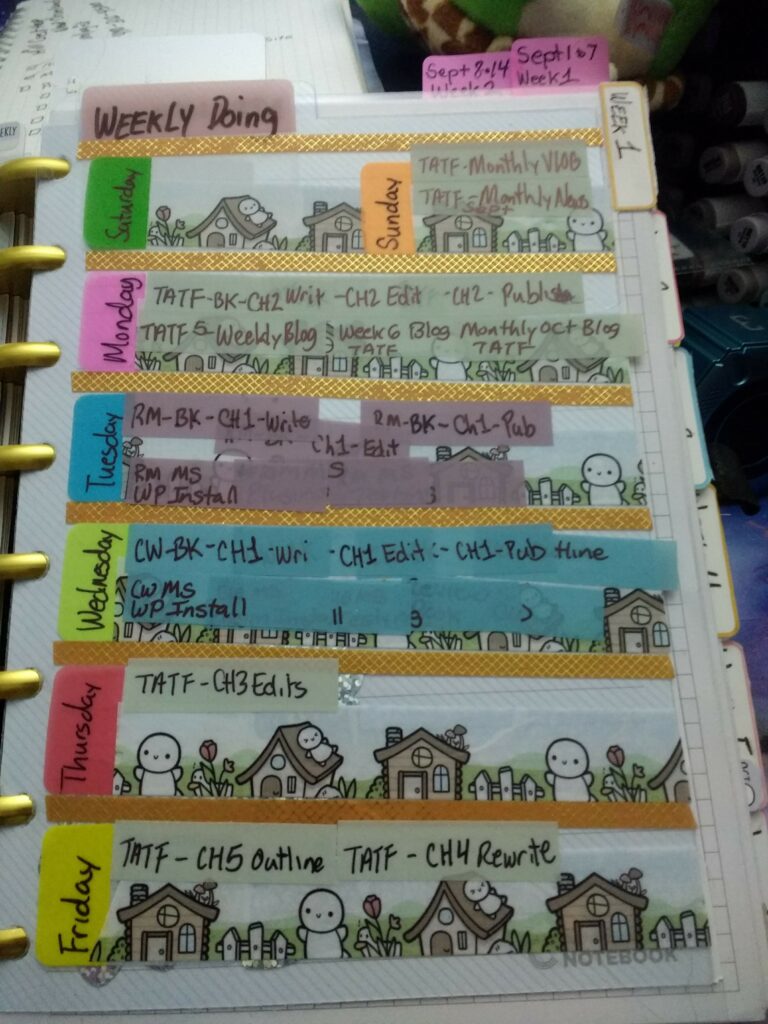 Sept 8-14
Sept 1-7
Week 1
WEEKLY Doing
WEEK 1
Saturday
Sunday
TATF-Monthly VLOG
TATF-Monthly News
Sept
Monday
TATF-BK-CH2 Writ -CH2 Edit -CH2-Publish
TATF 5-Weekly Blog Week 6 Blog Monthly Oct Blog
TATF TATF
Tuesday
RM-BK-CH1-Write RM-BK-Ch1-Pub
Ch1-Edit
RM MS S
WP Install
Wednesday
CW-BK-CH1-Wri -CH1 Edit :- CH1-Pub tline
CW MS
WP Install 11 3
Thursday
TATF-CH3 Edits
Friday
TATF - CH5 Outline TATF - CH4 Rewrite
NOTEBOOK